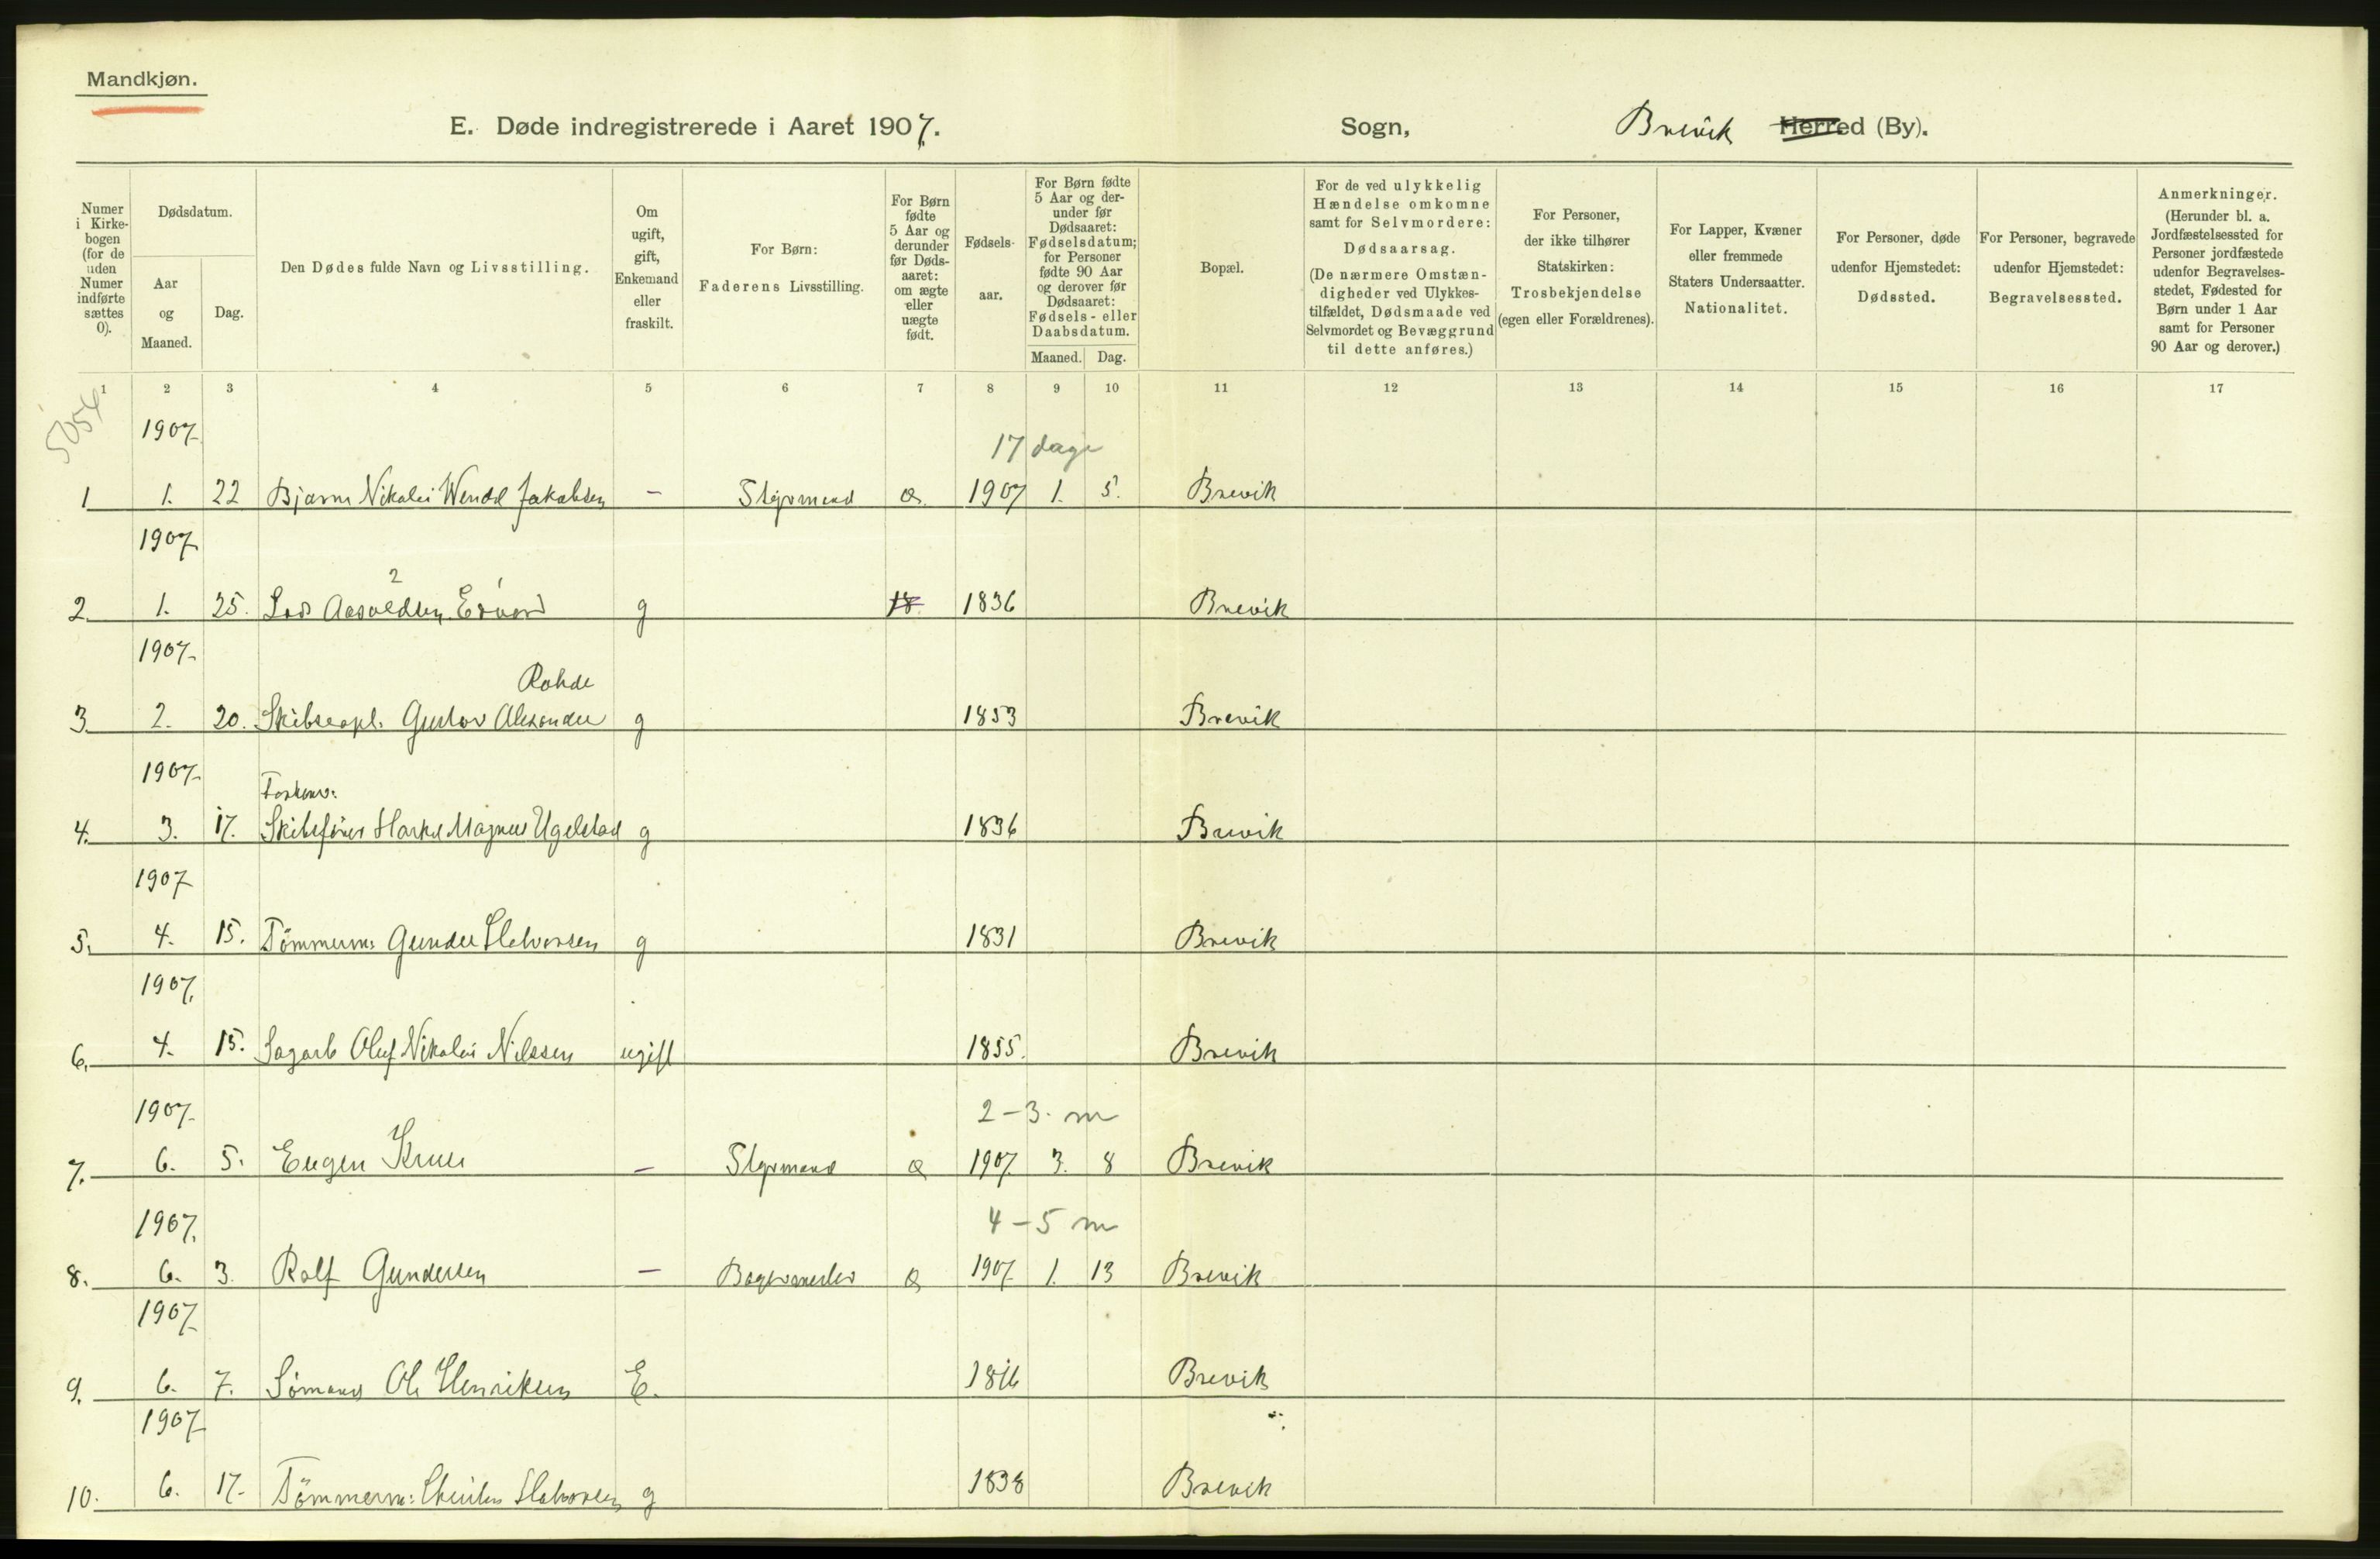 Mandkjøn.
E. Døde indregistrerede i Aaret 1907. Sogn, Brevik Herred (By).
Numer i Kirke-bogen (for de uden Numer indførte sættes 0).
Dødsdatum.
Aar og Maaned.
Dag.
Den Dødes fulde Navn og Livsstilling.
Om ugift, gift, Enkemand eller fraskilt.
For Børn: Faderens Livsstilling.
For Børn fødte 5 Aar og derunder før Døds-aaret: om ægte eller uægte født.
Fødsels-aar.
For Børn fødte 5 Aar og der-under før Dødsaaret: Fødselsdatum; for Personer fødte 90 Aar og derover før Dødsaaret: Fødsels- eller Daabsdatum.
Maaned. Dag.
Bopæl.
For de ved ulykkelig Hændelse omkomne samt for Selvmordere: Dødsaarsag. (De nærmere Omstæn-digheder ved Ulykkes-tilfældet, Dødsmaade ved Selvmordet og Bevæggrund til dette anføres.)
For Personer, der ikke tilhører Statskirken: Trosbekjendelse (egen eller Forældrenes).
For Lapper, Kvæner eller fremmede Staters Undersaatter. Nationalitet.
For Personer, døde udenfor Hjemstedet: Dødssted.
For Personer, begravede udenfor Hjemstedet: Begravelsessted.
Anmerkninger. (Herunder bl. a. Jordfæstelsessted for Personer jordfæstede udenfor Begravelses-stedet, Fødested for Børn under 1 Aar samt for Personer 90 Aar og derover.)
1 2 3 4 5 6 7 8 9 10 11 12 13 14 15 16 17
5054
1907
17 dage
1 1. 22 Bjarne Nikolai Wendel Jakobsen - Styrmand 1907 1. 5. Brevik
1907
2 1
2. 1. 25. Lods Aasoldsen, Edvard g 18 1836 Brevik
1907
Rohde
3 2. 20. Skibskapt. Gustav Alexander g 1853 Brevik
1907
4. 3. 17. Skibsfører Magnus Ugelstad g 1836 Brevik
1907
5. 4. 15. Tömmerm: Gunder Halvorsen g 1831 Brevik
1907.
6. 4. 15. Sagarb Oluf Nikolai Nilssen ugift 1855. Brevik
1907.
2-3. m
7. 6. 5. Eugen - Styrmand 1907 3. 8 Brevik
1907.
4-5 m
8. 6. 3. Rolf Gundersen - Bagermester 1907 1. 13 Brevik
1907
9. 6. 7. Sömand Ole Henriksen E. Brevik
1907
10. 6. 17. Tömmerm: Halvorsen g 1838 Brevik